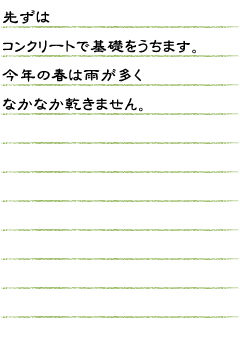 先ずは
コンクリートで基礎をうちます。
今年の春は雨が多く
なかなか乾きません。